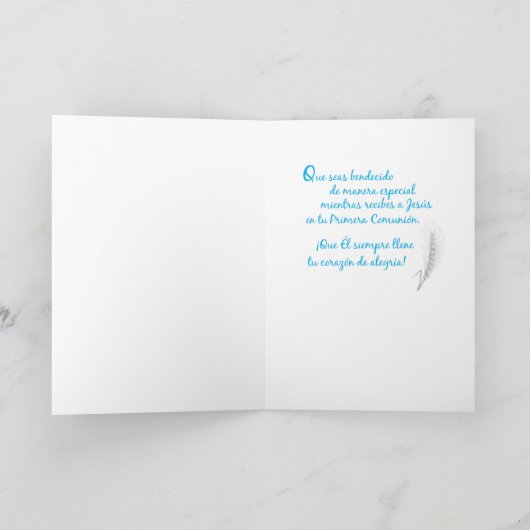 Que seas bendecido
de manera especial
mientras recibes a Jesús
en tu Primera Comunión.
¡Que Él siempre llene
tu corazón de alegría!